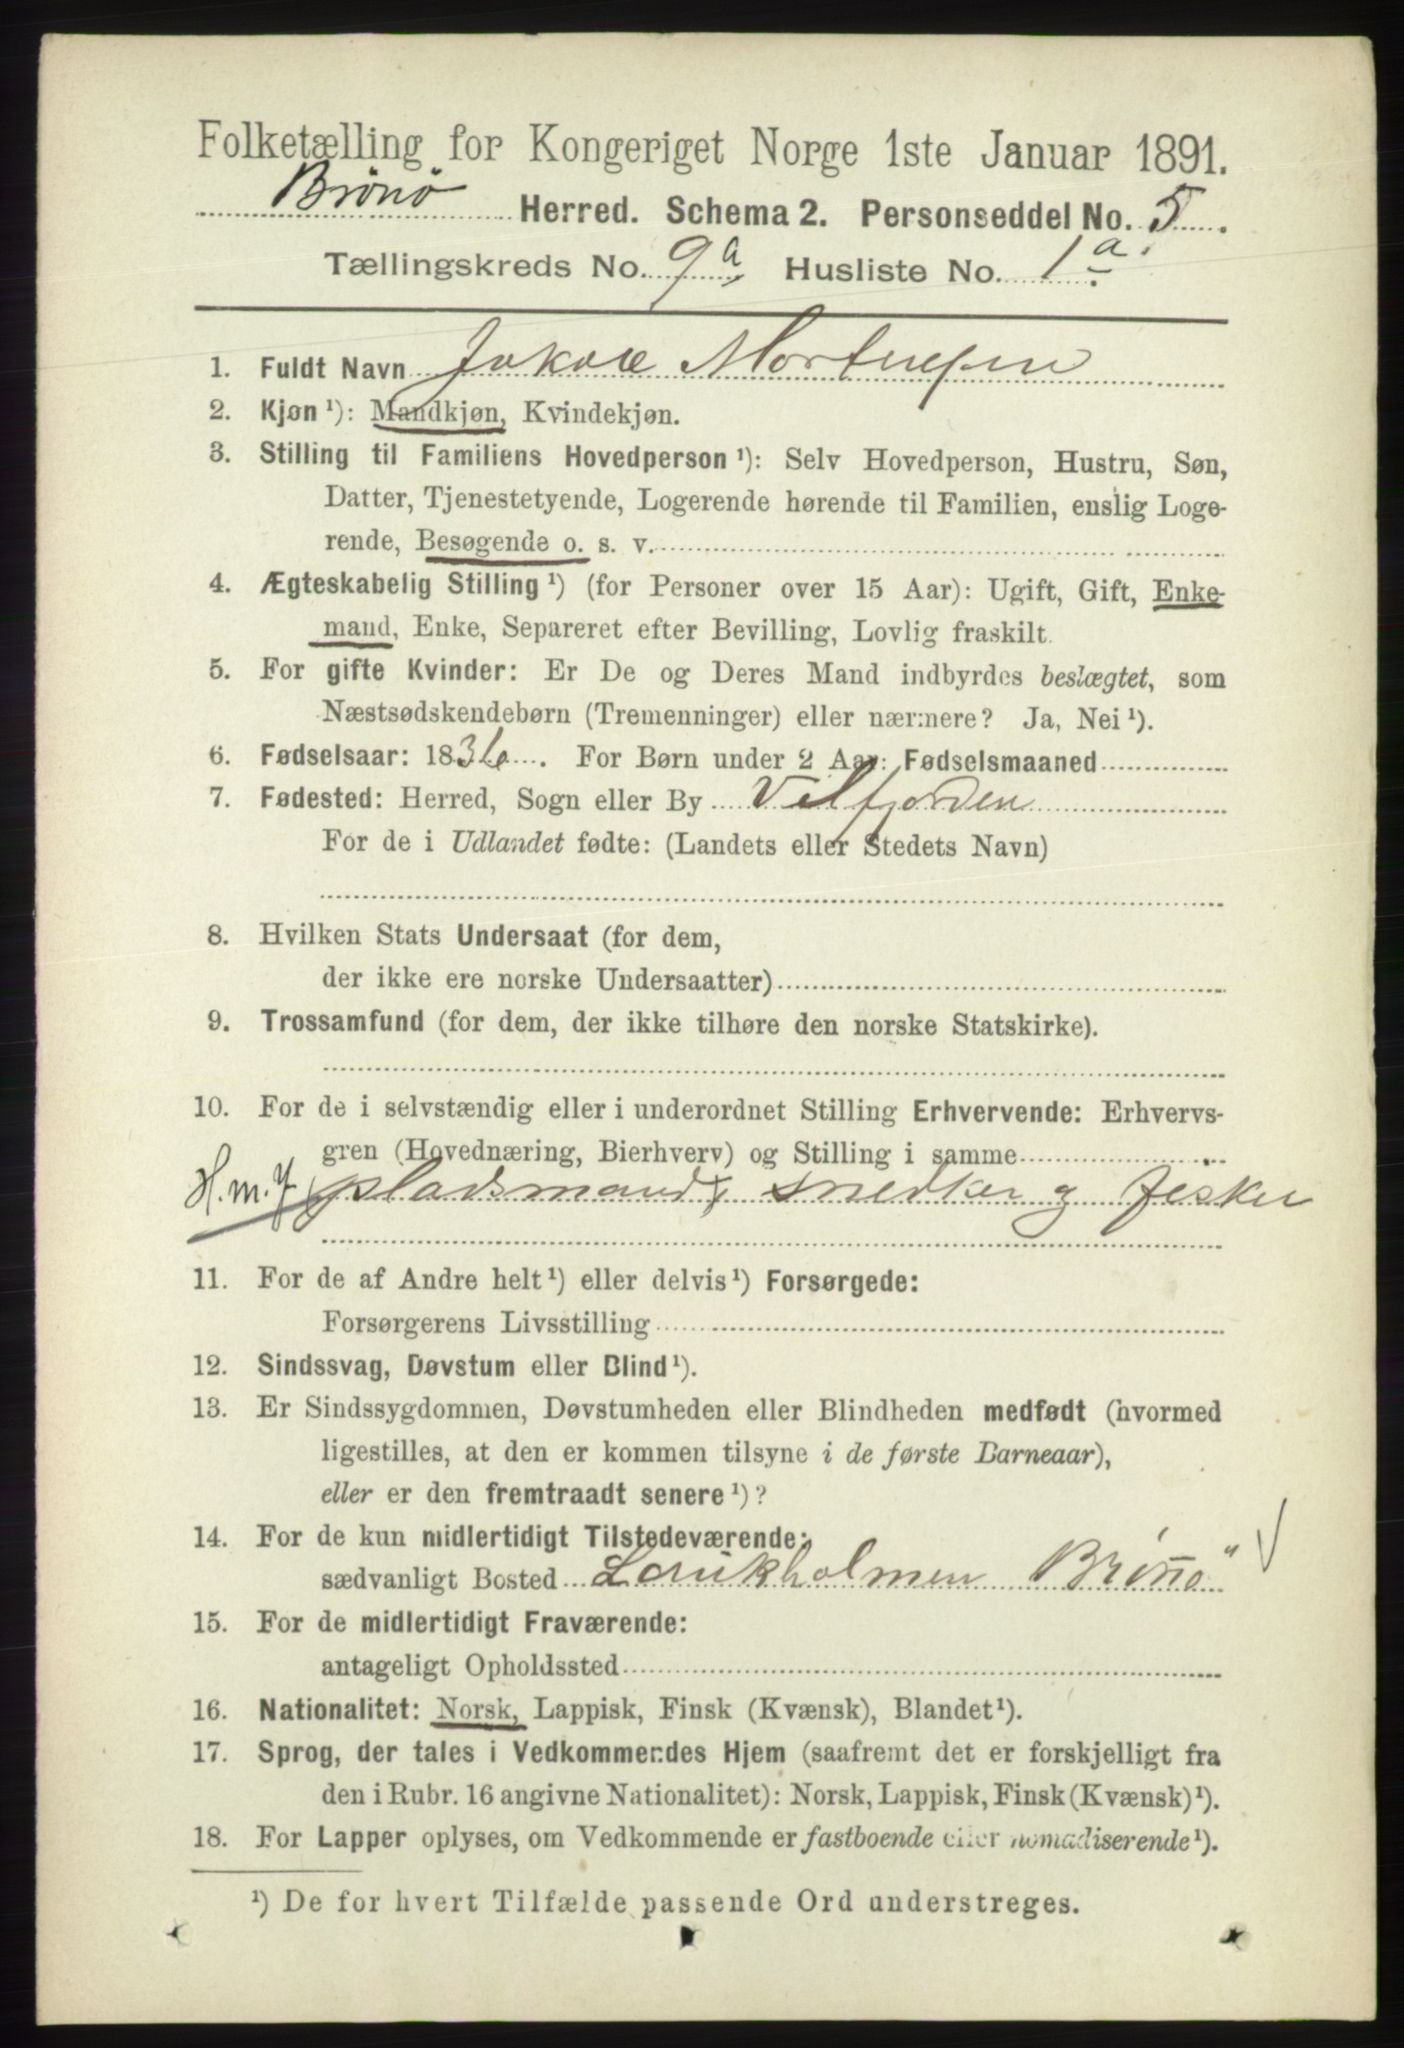 Folketælling for Kongeriget Norge 1ste Januar 1891.
Brönö Herred. Schema 2. Personseddel No. 5.
Tællingskreds No. 9a Husliste No. 1a.
1. Fuldt Navn Jakob Mortensen
2. Kjøn ¹): Mandkjøn, Kvindekjøn.
3. Stilling til Familiens Hovedperson ¹): Selv Hovedperson, Hustru, Søn,
Datter, Tjenestetyende, Logerende hørende til Familien, enslig Loge-
rende, Besøgende o. s. v.
4. Ægteskabelig Stilling ¹) (for Personer over 15 Aar): Ugift, Gift, Enke-
mand, Enke, Separeret efter Bevilling, Lovlig fraskilt.
5. For gifte Kvinder: Er De og Deres Mand indbyrdes beslægtet, som
Næstsødskendebørn (Tremenninger) eller nærmere? Ja, Nei ¹).
6. Fødselsaar: 1836. For Børn under 2 Aar: Fødselsmaaned
7. Fødested: Herred, Sogn eller By Velfjorden
For de i Udlandet fødte: (Landets eller Stedets Navn)
8. Hvilken Stats Undersaat (for dem,
der ikke ere norske Undersaatter)
9. Trossamfund (for dem, der ikke tilhøre den norske Statskirke).
10. For de i selvstændig eller i underordnet Stilling Erhvervende: Erhvervs-
gren (Hovednæring, Bierhverv) og Stilling i samme
H.m.J. pladsmand, snedker og fisker
11. For de af Andre helt ¹) eller delvis ¹) Forsørgede:
Forsørgerens Livsstilling
12. Sindssvag, Døvstum eller Blind ¹).
13. Er Sindssygdommen, Døvstumheden eller Blindheden medfødt (hvormed
ligestilles, at den er kommen tilsyne i de første Barneaar),
eller er den fremtraadt senere ¹)?
14. For de kun midlertidigt Tilstedeværende:
sædvanligt Bosted Laukholmen Brönö V
15. For de midlertidigt Fraværende:
antageligt Opholdssted
16. Nationalitet: Norsk, Lappisk, Finsk (Kvænsk), Blandet ¹).
17. Sprog, der tales i Vedkommendes Hjem (saafremt det er forskjelligt fra
den i Rubr. 16 angivne Nationalitet): Norsk, Lappisk, Finsk (Kvænsk) ¹).
18. For Lapper oplyses, om Vedkommende er fastboende eller nomadiserende ¹).
¹) De for hvert Tilfælde passende Ord understreges.